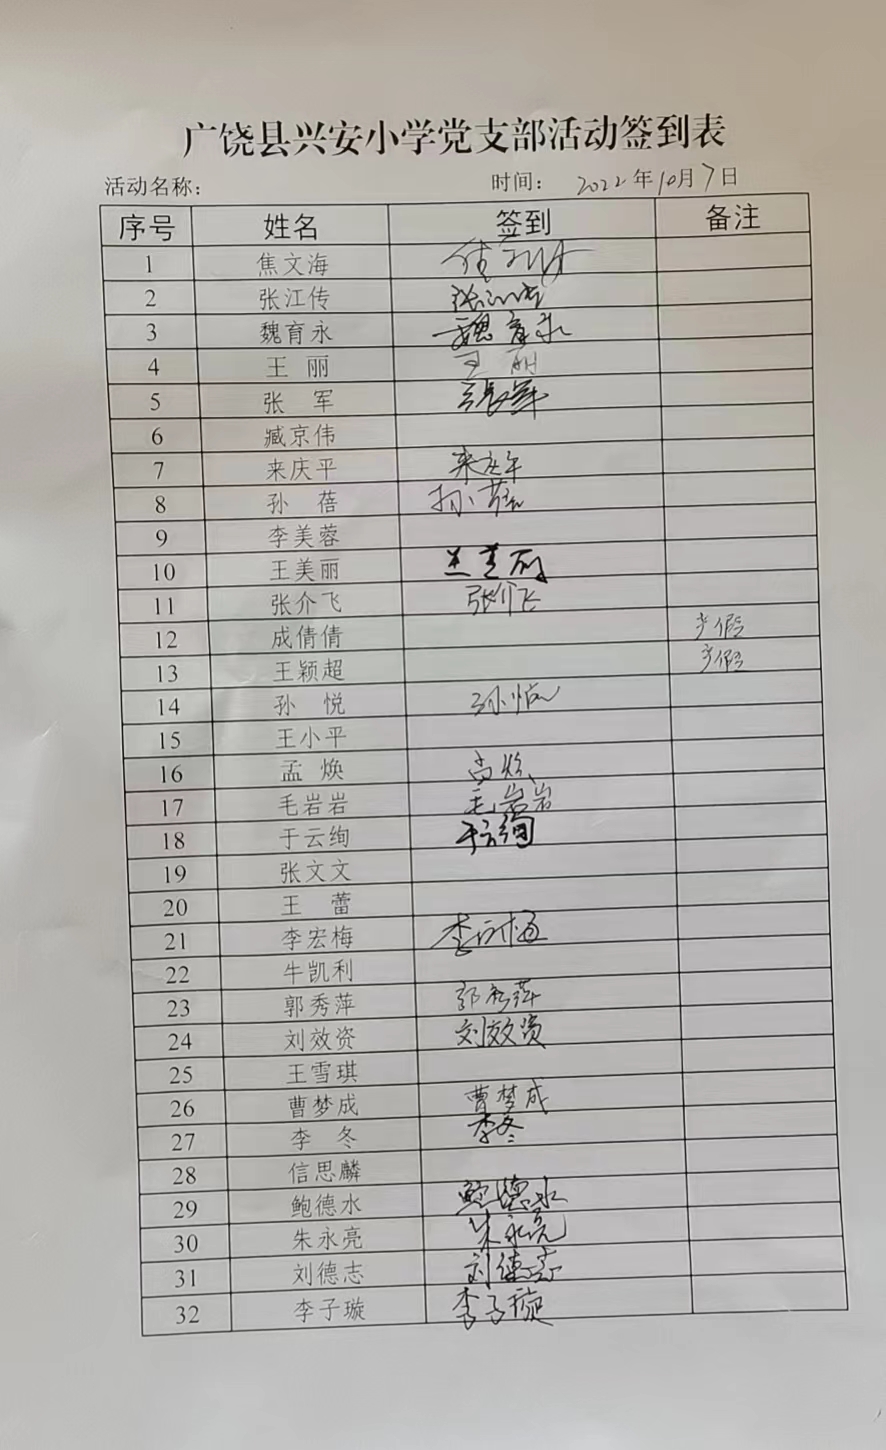 广饶县兴安小学党支部活动签到表
活动名称： 时间： 2022年10月7日
序号 姓名 签到 备注
1 焦文海
2 张江传 张江传
3 魏育永 魏育永
4 王 丽 王 丽
5 张 军 张军
6 臧京伟
7 来庆平 来庆平
8 孙 蓓 孙蓓
9 李美蓉
10 王美丽 王美丽
11 张介飞 张介飞
12 成倩倩 产假
13 王颖超 产假
14 孙 悦 孙悦
15 王小平
16 孟 焕 孟焕
17 毛岩岩 毛岩岩
18 于云绚 于云绚
19 张文文
20 王 蕾
21 李宏梅 李宏梅
22 牛凯利
23 郭秀萍 郭秀萍
24 刘效资 刘效资
25 王雪琪
26 曹梦成 曹梦成
27 李 冬 李冬
28 信思麟
29 鲍德水 鲍德水
30 朱永亮 朱永亮
31 刘德志 刘德志
32 李子璇 李子璇